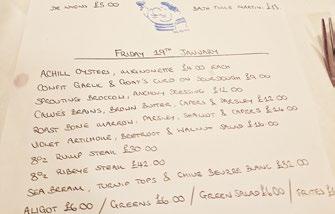 DE NUVONS £5.00
BATH TULLE MARTINI £13
FRIDAY 19TH JANUARY
ACHILL OYSTERS, MIGNONETTE £4.00 EACH
CONFIT GARLIC & GOAT'S CURD ON SOURDOUGH £9.00
SPROUTING BROCCOLI, ANCHOVY DRESSING £12.00
CALVES BRAINS, BROWN BUTTER, CAPERS & PARSLEY £12.00
ROAST BONE MARROW, PARSLEY, SHALLOT & CAPERS £14.00
VIOLET ARTICHOKE, BEETROOT & WALNUT SALAD £16.00
8oz RUMP STEAK £30.00
8oz RIBEYE STEAK £42.00
SEA BREAM, TURNIP TOPS & CHIVE BEURRE BLANC £32.00
ALIGOT £6.00 / GREENS £6.00 / GREEN SALAD £6.00 / FRITES